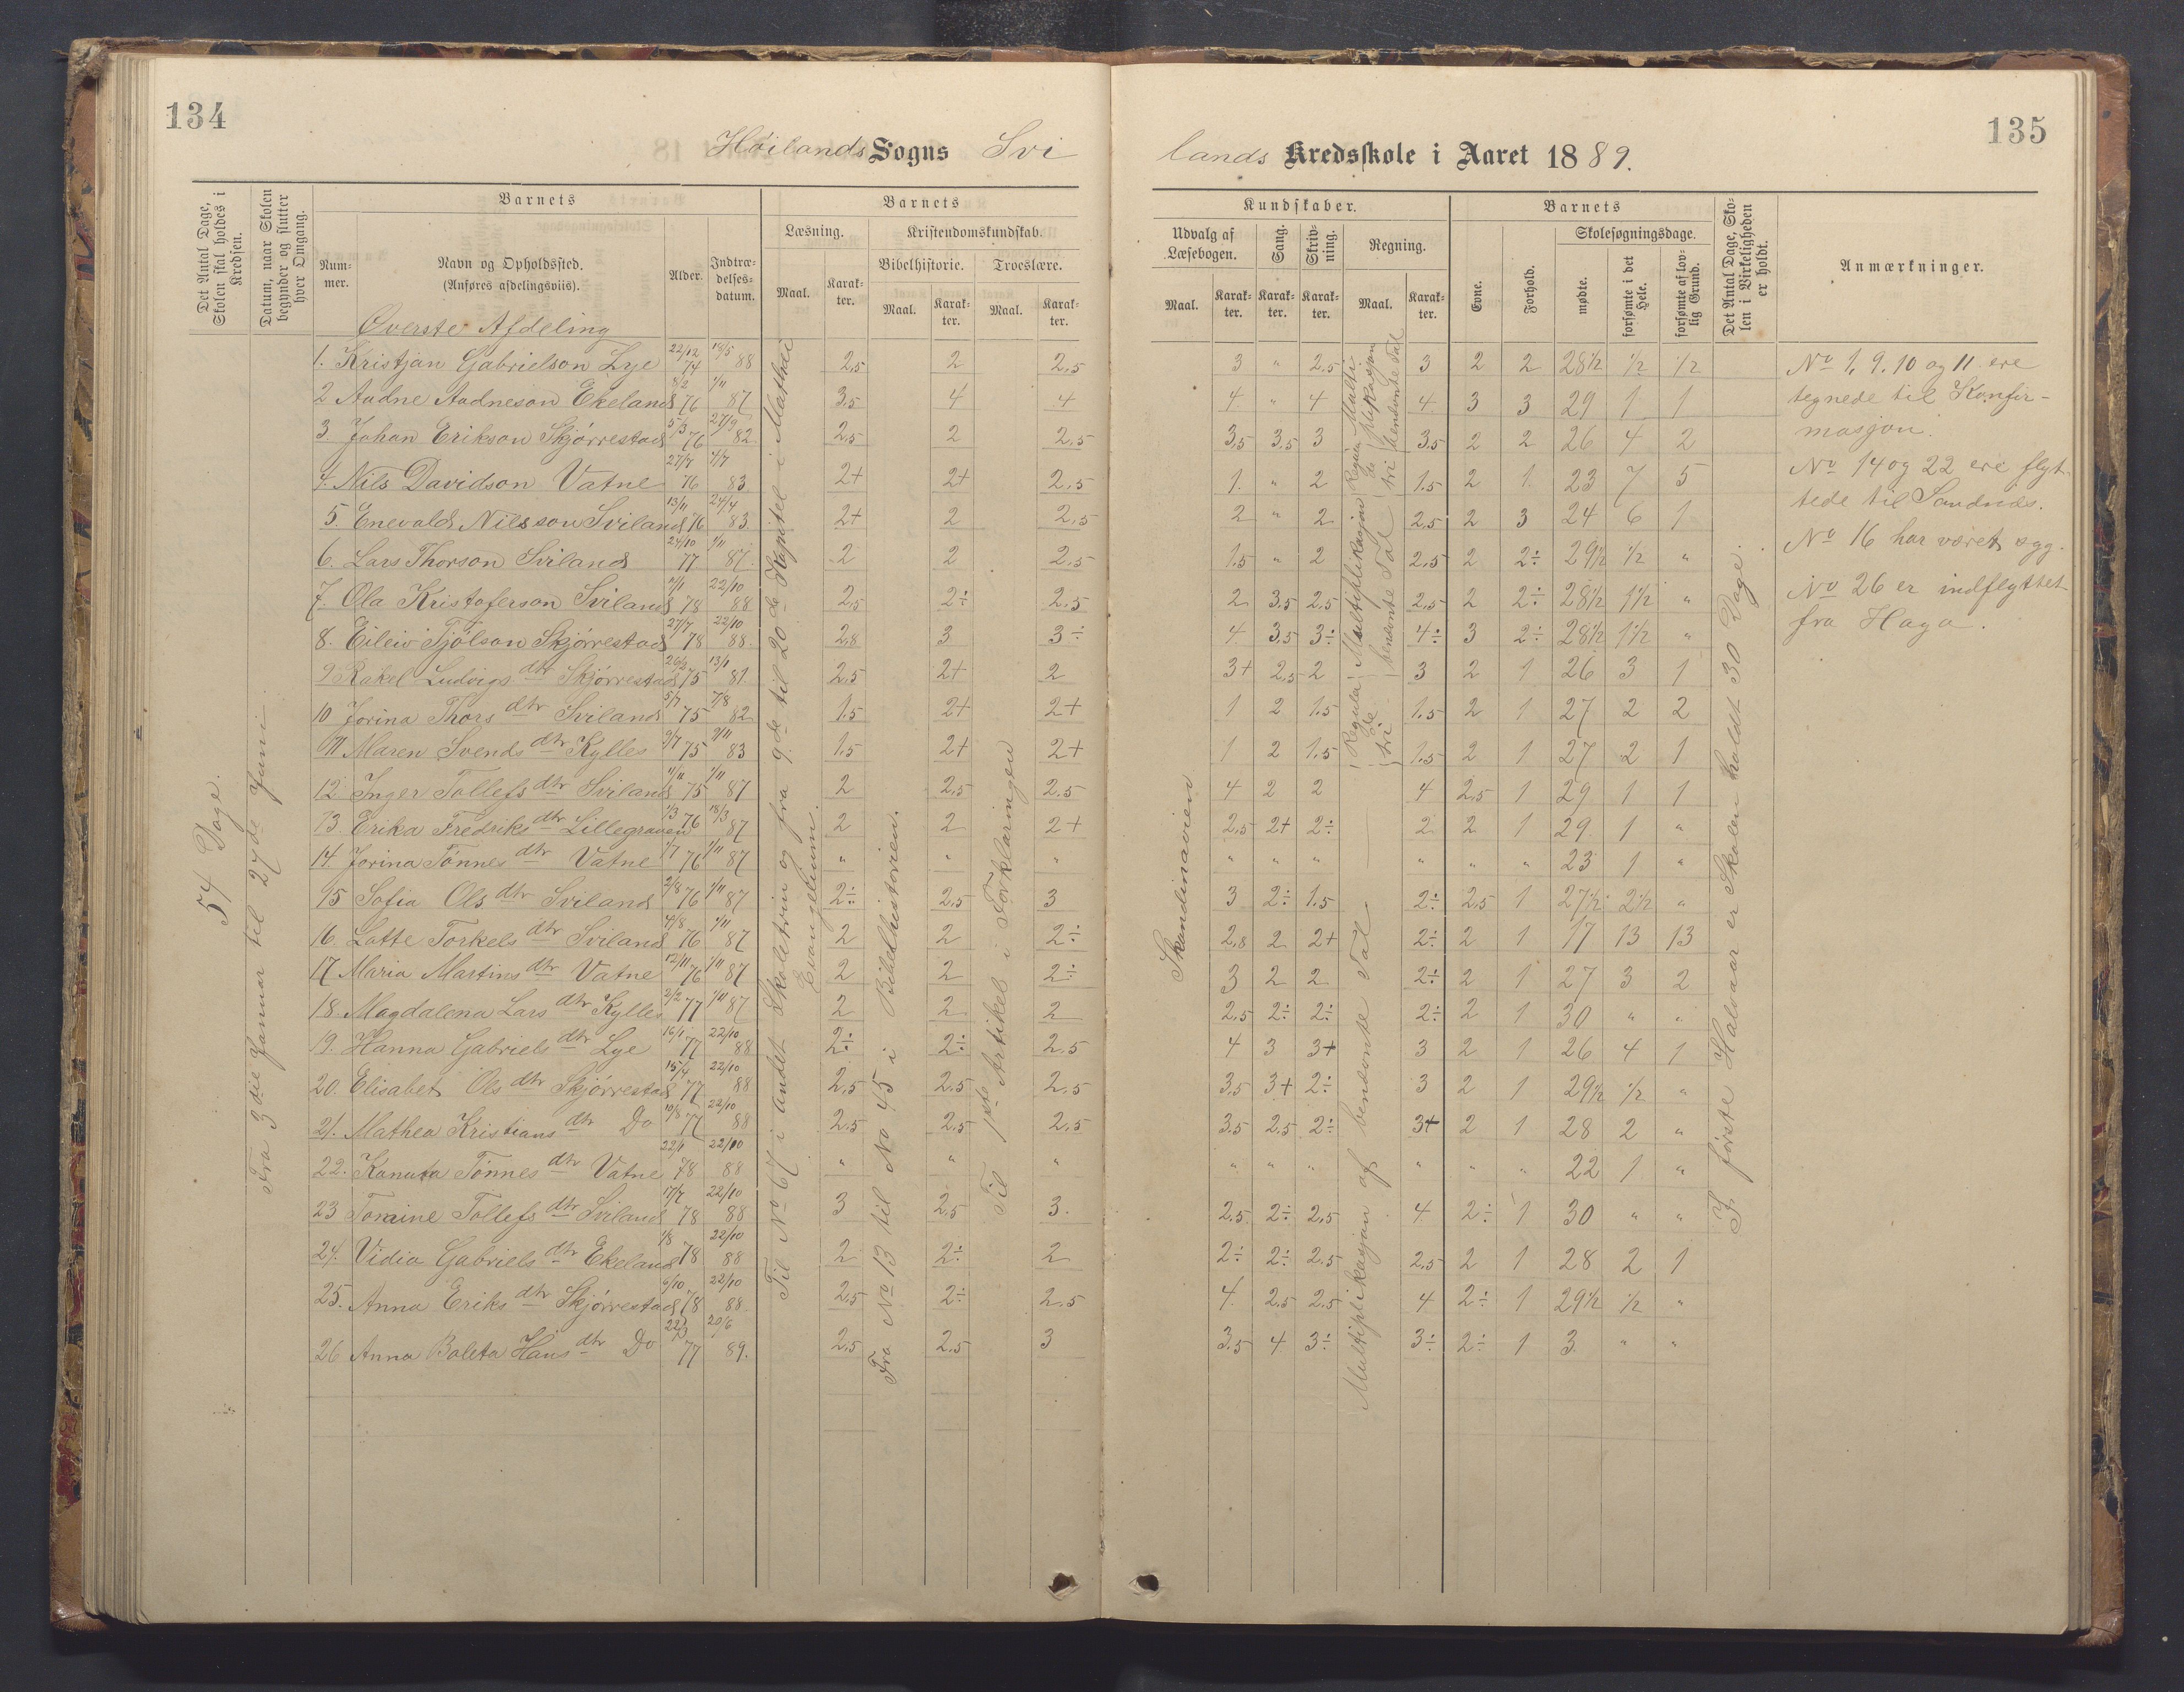 134
135
Höilands Sogns Svi
lands Kredsskole i Aaret 1889.
Det Antal Dage, Skolen skal holdes i Kredsen.
Datum, naar Skolen begynder og slutter hver Omgang.
Barnets
Num-mer.
Navn og Opholdssted.
(Anføres afdelingsviis).
Alder.
Indtræ-delses-datum.
Barnets
Læsning.
Maal.
Karak-ter.
Kristendomskundskab.
Bibelhistorie.
Maal.
Karak-ter.
Troeslære.
Maal.
Karak-ter.
Kundskaber.
Udvalg af Læsebogen.
Maal.
Karak-ter.
Sang.
Karak-ter.
Skriv-ning.
Karak-ter.
Regning.
Maal.
Karak-ter.
Barnets
Evne.
Forhold.
Skolesøgningsdage.
mødte.
forsømte i det Hele.
forsømte af lov-lig Grund.
Det Antal Dage, Sko-len i Virkeligheden er holdt.
Anmærkninger.
54 Dage.
Fra 3die Januar til 27de Juni
Øverste Afdeling
1. Kristjan Gabrielson Lye 22/12 74 18/5 88 2,5 2 2,5 3 " 2,5 3 2 2 28½ ½ ½
2 Aadne Aadneson Ekeland 8/2 76 1/11 87 3,5 4 4 4 " 4 4 3 3 29 1 1
3. Johan Erikson Skjørrestad 5/3 76 27/9 82. 2,5 2 2,5 3,5 3,5 3 3,5 2 2 26 4 2
4. Nils Davidson Vatne 27/7 76 4/7 83 2+ 2+ 2,5 1. " 2 1.5 2 1 23 7 5
5. Enevald Nilsson Sviland 13/11 76 24/4 83. 2+ 2 2,5 2 " 2 2,5 2 3 24 6 1
6. Lars Thorson Sviland 24/10 77 1/11 87. 2 2 2,5 1.5 " 2 2,5 2 2÷ 29½ ½ "
7. Ola Kristoferson Sviland 2/1 78 22/10 88 2,5 2÷ 2,5 2 3,5 2,5 2,5 2 2÷ 28½ 1½ "
8. Eileiv Tjølson Skjørrestad 27/7 78 22/10 88. 2,8 3 3÷ 4 3,5 3÷ 4÷ 3 2÷ 28½ 1½ "
9 Rakel Ludvigs dtr Skjørrestad 26/2 75 13/1 81. 2,5 2+ 2 3+ 2,5 2 3 2 1 26 3 1
10 Jorina Thors dtr Sviland 5/7 75 7/8 82 1.5 2+ 2+ 1 2 1.5 1.5 2 1 27 2 2
11 Maren Svends dtr Kylles 9/7 75 9/11 83 1.5 2+ 2+ 1 2 1.5 1.5 2 1 27 2 1
12. Inger Tollefs dtr Sviland 11/11 75 1/11 87 2 2,5 2.5 4 2 2 4 2,5 1 29 1 1
13. Erika Fredriks dtr Lillegraven 1/3 76 18/3 87 2 2 2+ 2,5 2+ 2÷ 2 2 1 29. 1 "
14. Jorina Tønnes dtr Vatne 1/7 76 1/11 87 " " " " " " " " " 23 1 "
15 Sofia Ols dtr Sviland 2/8 76 1/11 87 2÷ 2,5 3 3 2÷ 1.5 2÷ 2,5 1 27½ 2½ "
16. Lotte Torkels dtr Sviland 4/8 76 1/11 87 2 2 2÷ 2,8 2 2+ 2÷ 2 1 17 13 13
17 Maria Martins dtr Vatne 12/11 76 1/11 87 2 2 2÷ 3 2 2 2÷ 2 1 27 3 2
18. Magdalena Lars dtr Kylles 2/2 77 1/11 87 2 2 2 2,5 2÷ 2÷ 2÷ 2 1 30 " "
19. Hanna Gabriels dtr Lye 16/1 77 22/10 88 2÷ 2÷ 2.5 4 3 3+ 3 2 1 26 4 1
20. Elisabet Ols dtr Skjørrestad 15/4 77 22/10 88 2,5 2.5 2,5 3,5 3+ 2÷ 3 2 1 29½ ½ "
21. Mathea Kristians dtr Do 10/8 77 22/10 88 2,5 2,5 2,5 3.5 2,5 2÷ 3+ 2 1 28 2 "
22. Kanuta Tønnes dtr Vatne 22/1 78 22/10 88 " " " " " " " " " 22 1 "
23 Tomine Tollefs dtr Sviland 17/7 78 22/10 88 3 2,5 3. 2.5 2÷ 2,5 4 2÷ 1 30 " "
24. Vidia Gabriels dtr Ekeland 1/8 78 22/10 88 2 2÷ 2 2÷ 2÷ 2.5 2,5 2 1 28 2 1
25. Anna Eriks dtr Skjørrestad 6/10 78 22/10 88. 2,5 2÷ 2,5 4 2,5 2,5 4 2÷ 1 29½ ½ "
26 Anna Boleta Hans dtr Do 22/3 77 20/6 89. 2,5 2.5 3 3,5 4 3÷ 3÷ 2÷ 1 3 " "
Til No 67 i andet Skoletrin og fra 9de til 20de Kapitel i Mathæi
Evangelium.
Fra No 13 til No 45 i Bibelhistorien.
Til 1ste Artikel i Forklaringen
Skandinavien
Regula de tri
Multiplikasjon
benævnte Tal
Regula de tri
Multiplikasjon
benævnte Tal
Multiplikasjon af benævnte Tal.
I første Halvaar er Skolen holdt 30 Dage.
No 1, 9, 10 og 11 ere
tegnede til Konfir-
masjon.
No 14 og 22 ere flyt-
tede til Sandnæs.
No 16 har været syg.
No 26 er indflyttet
fra Haga.